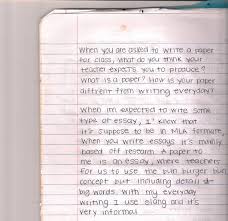 When you are asked to write a paper
for class, what do you think your
teacher expects you to produce?
What is a paper? How is your paper
diffrent from writing everyday?
When im expected to write some
type of essay, I knew that
it's suppose to be in MLA formate,
When you write essays it's mainly
based off research. A paper to
me is an essay, where teachers
for us to use the bun burger bun
concept but including detail &
big words. With my everyday
writing I use slang and it's
very informal